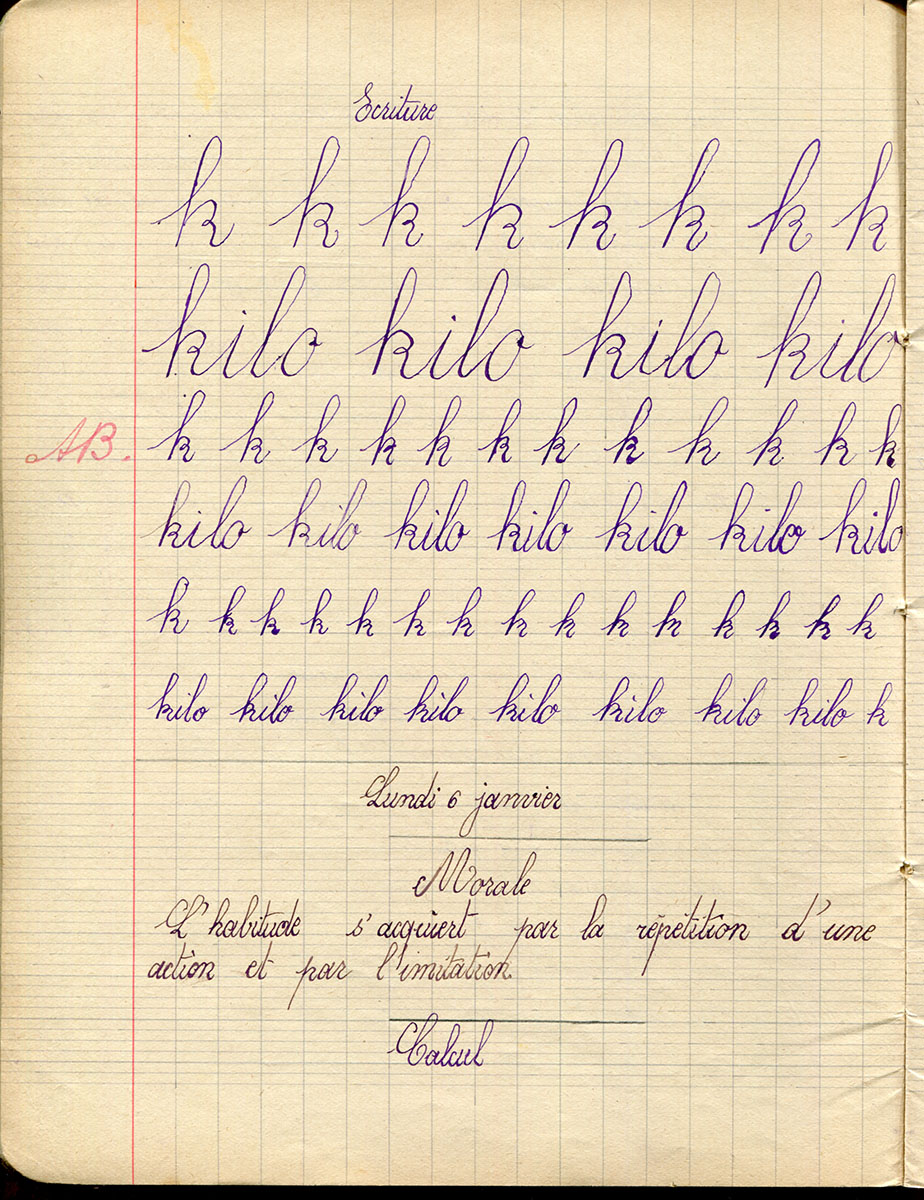 Ecriture
k k k k k k k k
kilo kilo kilo kilo
AB. k k k k k k k k k k k k
kilo kilo kilo kilo kilo kilo kilo
k k k k k k k k k k k k k k k
kilo kilo kilo kilo kilo kilo kilo kilo k
Lundi 6 janvier
Morale
L'habitude s'acquiert par la répétition d'une
action et par l'imitation
Calcul